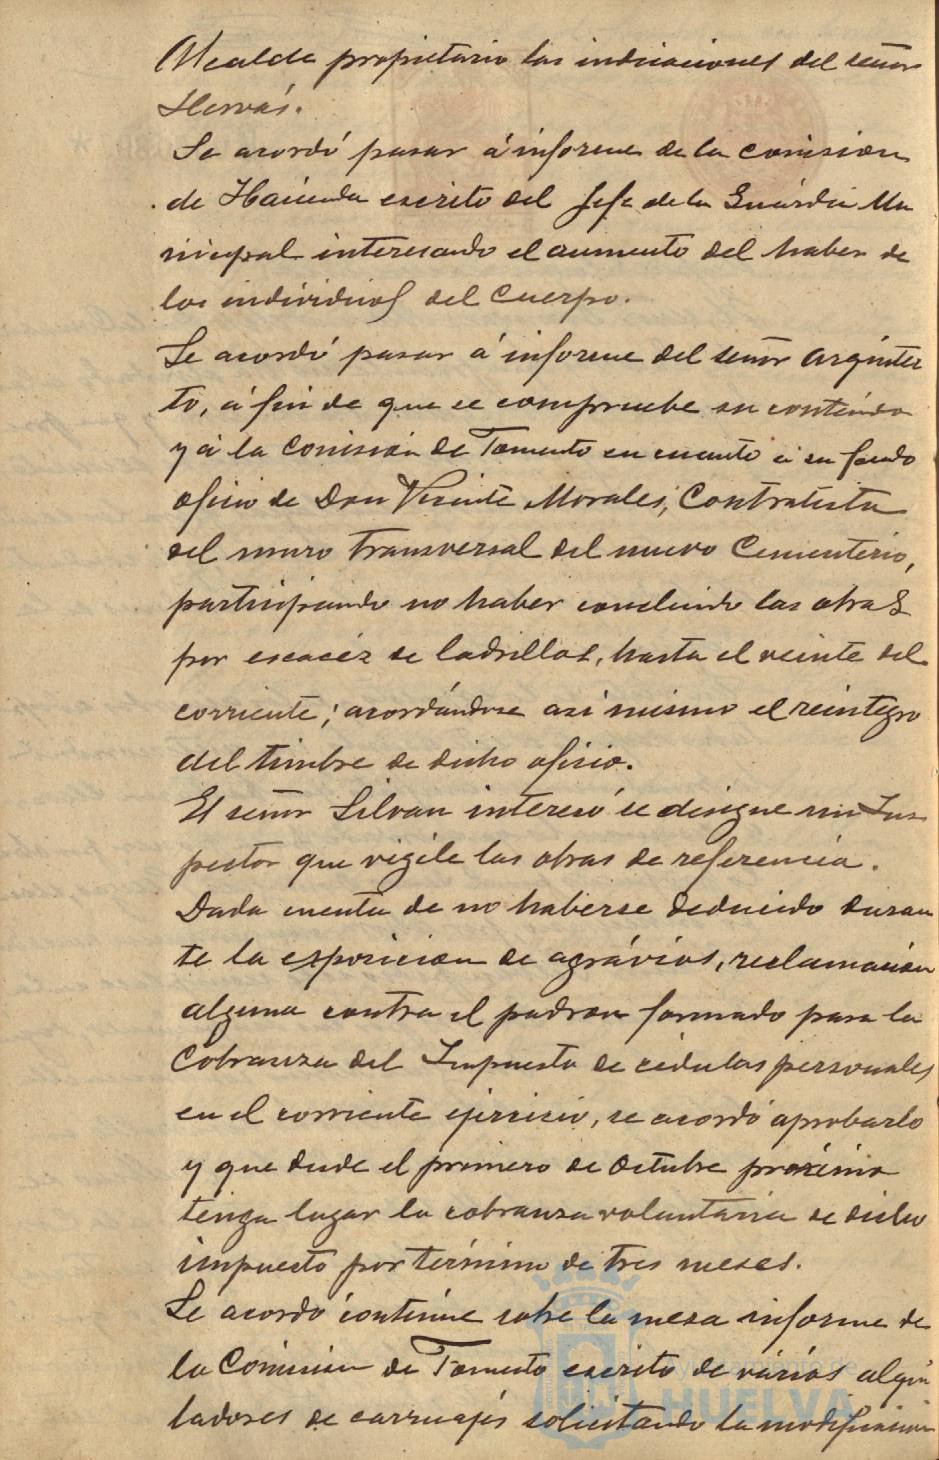 Alcalde propietario las indicaciones del señor
Hervás.
Se acordó pasar á informe de la comision
de Hacienda escrito del Jefe de la Guárdia Mu
nicipal interesando el aumento del haber de
los individuos del Cuerpo.
Se acordó pasar á informe del señor Arquitec
to, á fin de que se compruebe su contenido
y á la Comision de Fomento en cuanto á su fondo
oficio de Don Vicente Morales, Contratista
del muro transversal del nuevo Cementerio,
participando no haber concluido las obras
por escacéz de ladrillos, hasta el veinte del
corriente; acordándose asi mismo el reintegro
del timbre de dicho oficio.
El señor Silvan interesó se designe un Ins
pector que vigile las obras de referencia.
Dada cuenta de no haberse deducido duran
te la esposicion de agrávios, reclamacion
alguna contra el padron formado para la
Cobranza del Impuesto de cédulas personales
en el corriente ejercicio, se acordó aprobarlo
y que desde el primero de Octubre próximo
tenga lugar la cobranza voluntaria de dicho
impuesto por término de tres meses.
Se acordó continúe sobre la mesa informe de
la Comision de Fomento escrito de várias alqui
ladores de carruajes solicitando la modificacion
Ayuntamiento de
HUELVA